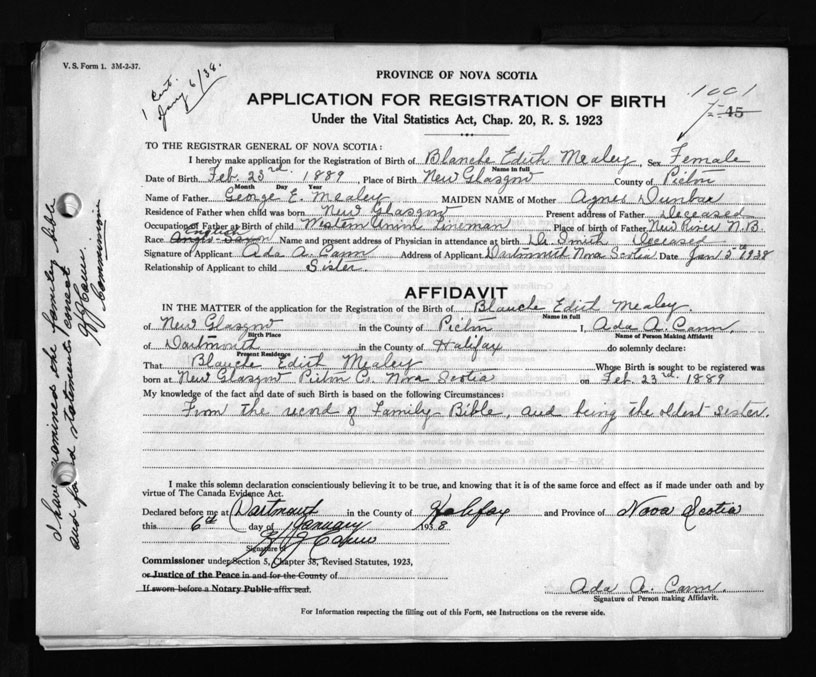 V. S. Form 1. 3M-2-37.
1 Cert.
Jany 6/38.
PROVINCE OF NOVA SCOTIA
1001
45
APPLICATION FOR REGISTRATION OF BIRTH
Under the Vital Statistics Act, Chap. 20, R. S. 1923
TO THE REGISTRAR GENERAL OF NOVA SCOTIA:
I hereby make application for the Registration of Birth of Blanche Edith Mealey, Sex Female
Name in full
Date of Birth Feb. 23rd. 1889 Place of Birth New Glasgow County of Pictou
Month Day Year
Name of Father George E. Mealey MAIDEN NAME of Mother Agnes Dunbar
Residence of Father when child was born New Glasgow Present address of Father Deceased
Occupation of Father at Birth of child Western Union Lineman Place of birth of Father New River N.B.
English
Race Anglo-Saxon Name and present address of Physician in attendance at birth Dr Smith Deceased
Signature of Applicant Ada A. Cann Address of Applicant Dartmouth Nova Scotia Date Jan 5th 1938
Relationship of Applicant to child Sister.
AFFIDAVIT
IN THE MATTER of the application for the Registration of the Birth of Blanche Edith Mealey.
Name in full
of New Glasgow in the County of Pictou I, Ada A. Cann,
Birth Place Name of Person Making Affidavit
of Dartmouth in the County of Halifax do solemnly declare:
Present Residence
That Blanche Edith Mealey Whose Birth is sought to be registered was
born at New Glasgow Pictou Co. Nova Scotia on Feb. 23rd. 1889
My knowledge of the fact and date of such Birth is based on the following Circumstances:
From the record of Family Bible, and being the oldest sister.
I make this solemn declaration conscientiously believing it to be true, and knowing that it is of the same force and effect as if made under oath and by
virtue of The Canada Evidence Act.
Declared before me at Dartmouth in the County of Halifax and Province of Nova Scotia
this 6th day of January 1938
Signature of
Commissioner under Section 5, Chapter 38, Revised Statutes, 1923,
or Justice of the Peace in and for the County of
If sworn before a Notary Public affix seal.
Ada A. Cann.
Signature of Person making Affidavit.
For Information respecting the filling out of this Form, see Instructions on the reverse side.
I have examined the family bible
and found statements correct
Commissioner